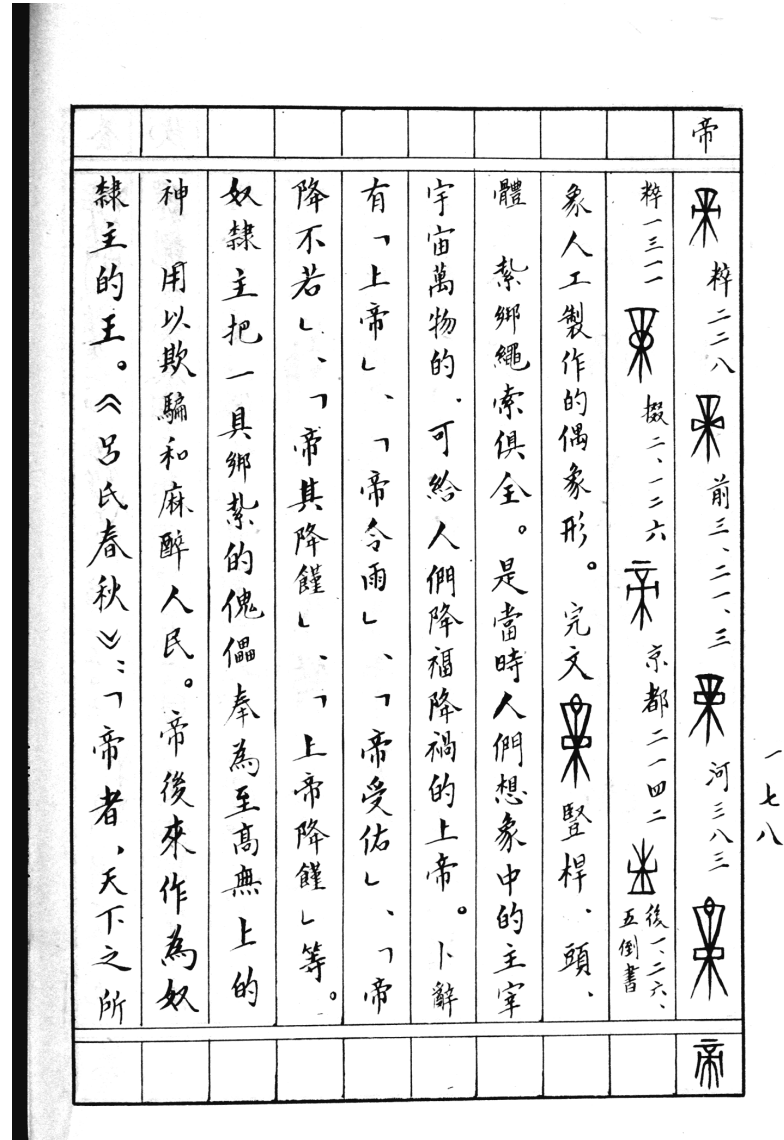 一七八
帝
粹二二八 前三、二一、三 河三八三
粹一三一一 掇二、一二六 京都二一四二 後一、二六、五倒書
象人工製作的偶象形。完文 豎桿、頭、
體 紮綁繩索俱全。是當時人們想象中的主宰
宇宙萬物的，可給人們降福降禍的上帝。卜辭
有「上帝」、「帝令雨」、「帝受佑」、「帝
降不若」、「帝其降饉」、「上帝降饉」等。
奴隸主把一具綁紮的傀儡奉為至高無上的
神 用以欺騙和麻醉人民。帝後來作為奴
隸主的王。《呂氏春秋》：「帝者，天下之所
帝